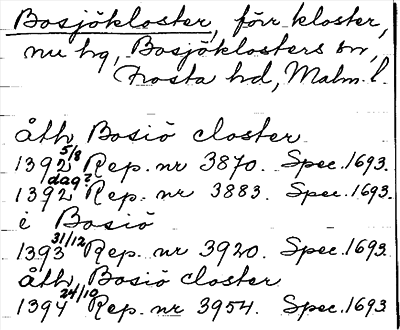 Bosjökloster, förr kloster,
nu hg, Bosjöklosters sn,
Frosta hd, Malm. l.
åth Bosiö closter
1392 5/8 Rep. nr 3870. Spec. 1693.
1392 dag? Rep. nr 3883. Spec. 1693.
i Bosiö
1393 31/12 Rep. nr 3920. Spec. 1693
åth Bosiö closter
1394 24/10 Rep. nr 3954. Spec. 1693